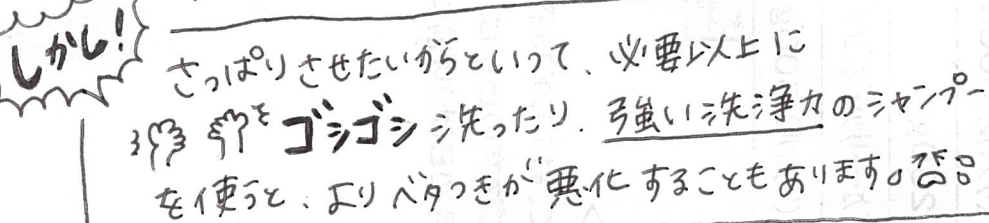 しかし!
さっぱりさせたいからといって、必要以上に
を ゴシゴシ 洗ったり、強い洗浄力のシャンプー
を使うと、よりベタつきが悪化することもあります。